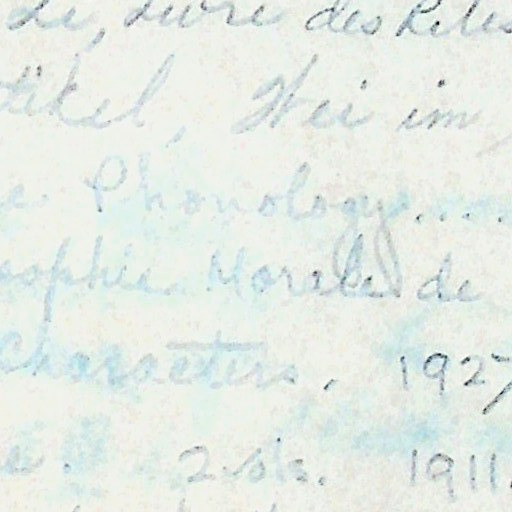 de, Livre des Rites
tikel, Wei im
Phonology...
sophie Morale de
Characters, 1927
2 vols. 1911.